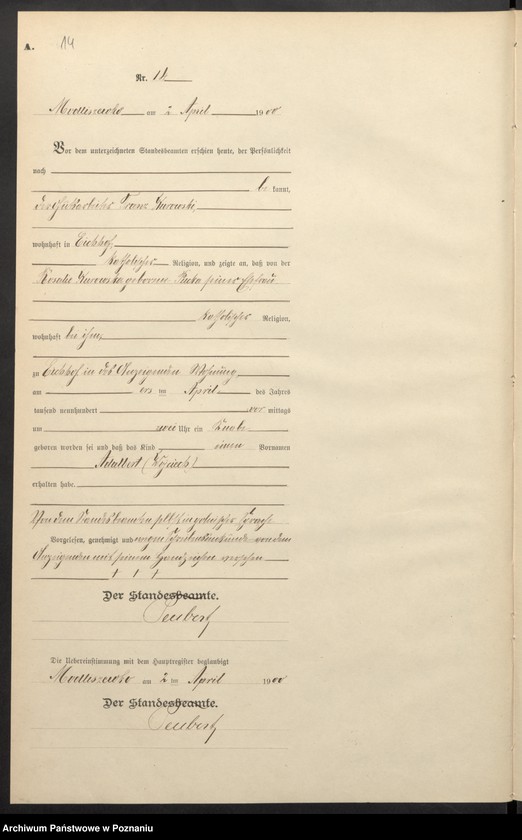 A. 14
Nr. 14
Modliszewko am 2 April 1900
Vor dem unterzeichneten Standesbeamten erschien heute, der Persönlichkeit
nach
be kannt,
der Franz Kurowski
wohnhaft in Eichhof,
katholischer Religion, und zeigte an, daß von der
Rosalie Kurowska geborenen seiner Ehefrau
katholischer Religion,
wohnhaft bei ihm,
zu Eichhof in des Anzeigenden Wohnung,
am ersten April des Jahres
tausend neunhundert vor mittags
um Uhr ein Knabe
geboren worden sei und daß das Kind einen Vornamen
Adalbert (Wojciech)
erhalten habe.
Von dem Standesbeamten selbst in polnischer Sprache
Vorgelesen, genehmigt und wegen Schreibensunkunde von dem
Anzeigenden mit seinem Handzeichen versehen
† † †
Der Standesbeamte.
Seubert
Die Uebereinstimmung mit dem Hauptregister beglaubigt
Modliszewko am 2 ten April 1900
Der Standesbeamte.
Seubert
Archiwum Państwowe w Poznaniu